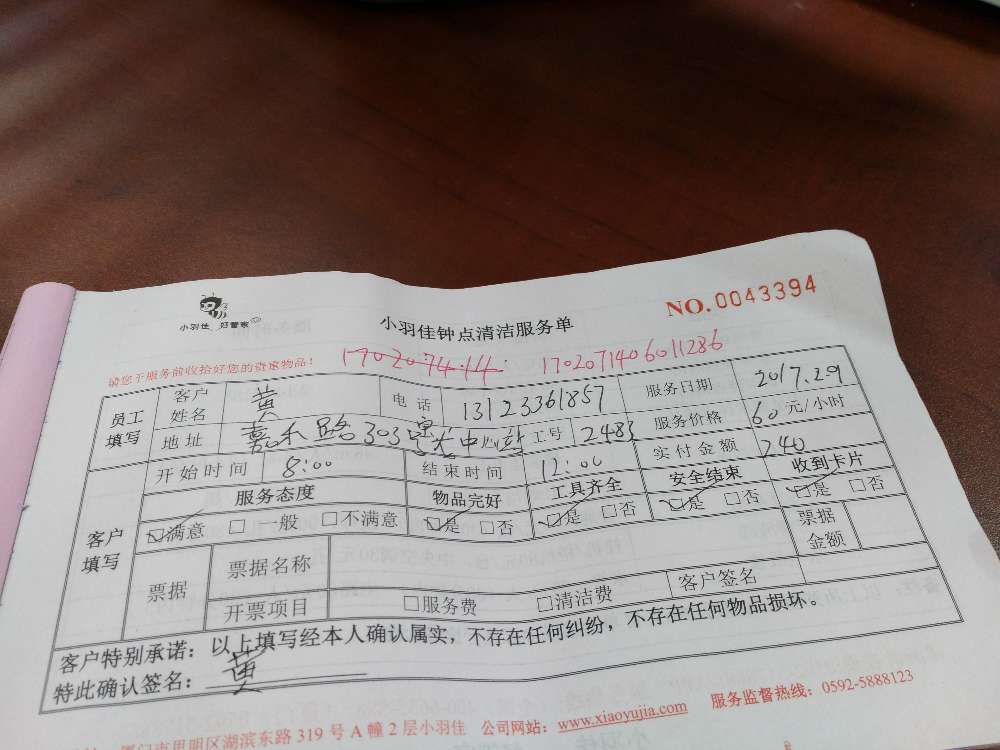 小羽佳 好管家
小羽佳钟点清洁服务单
NO.0043394
请您于服务前收拾好您的贵重物品!
1702071406011286
员工填写 客户姓名 黄 电话 13123361857 服务日期 2017.2.9
地址 嘉禾路303号 工号 2483 服务价格 60元/小时
开始时间 8:00 结束时间 12:00 实付金额 240
客户填写 服务态度 物品完好 工具齐全 安全结束 收到卡片
☑满意 □一般 □不满意 ☑是 □否 ☑是 □否 ☑是 □否 ☑是 □否
票据 票据名称 票据金额
开票项目 □服务费 □清洁费 客户签名
客户特别承诺:以上填写经本人确认属实,不存在任何纠纷,不存在任何物品损坏。
特此确认签名: 黄
厦门市思明区湖滨东路319号A幢2层小羽佳 公司网站:www.xiaoyujia.com 服务监督热线:0592-5888123